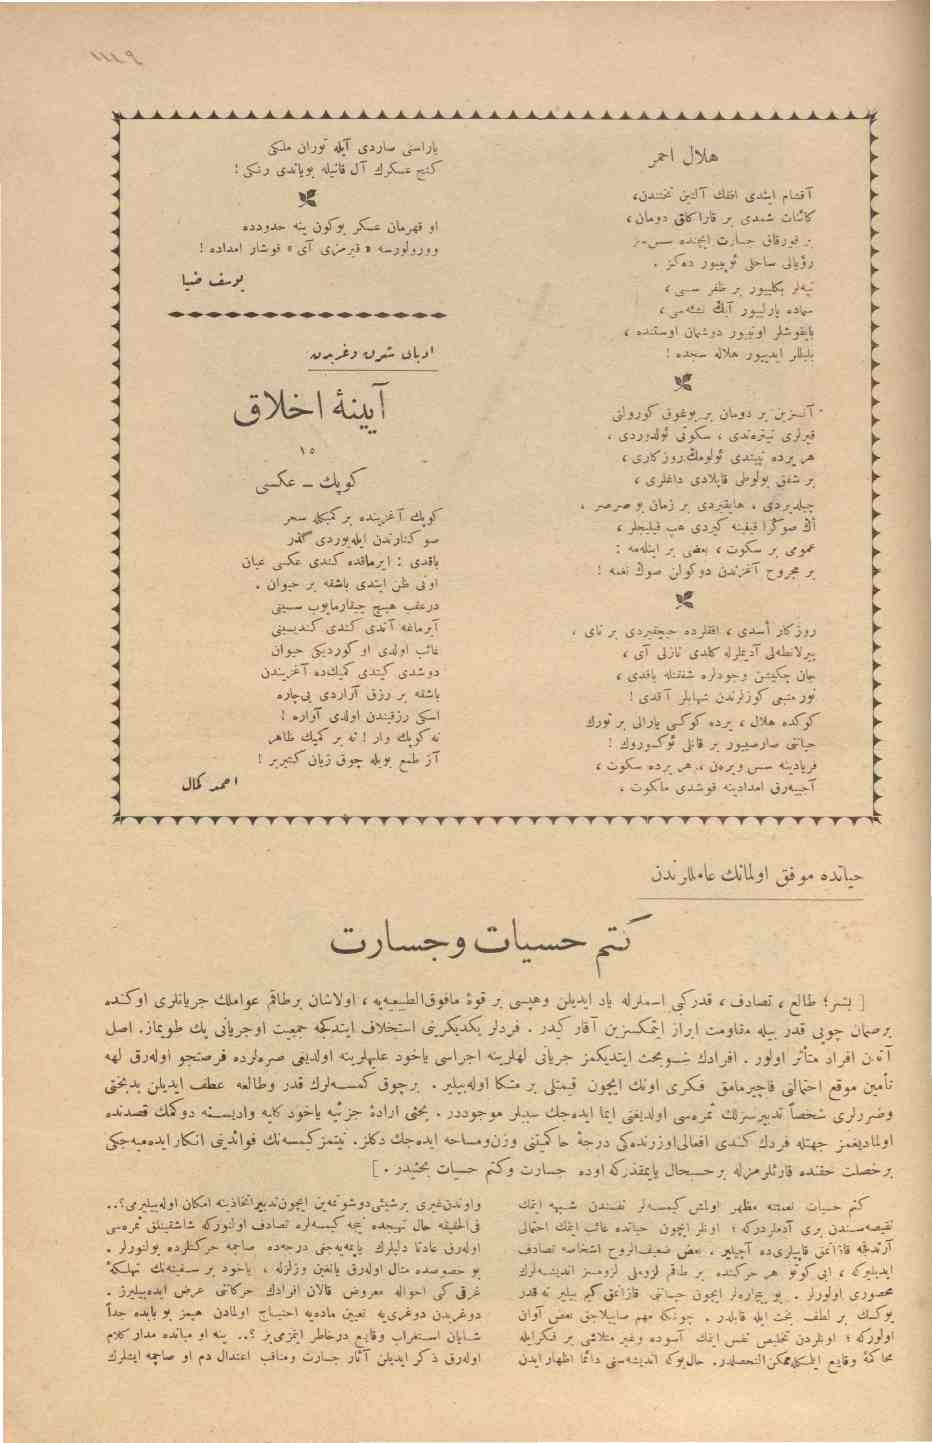 هلال احمر
آقشام ایتدی افقك آلتین تختندن،
كائنات شمدی بر قارا كلق دومان،
بر قورقاق جسارت ایچنده سس‌سز
رؤیالی ساحلی ئوپییور ده‌كز .
تپه‌لر بكلییور بر ظفر سسی ،
سماده پارلییور آیك نشئه‌سی ،
بایقوشلر اوتییور دوشمان اوستنده ،
بلبللر ایدییور هلاله سجده !
آنسزین بر دومان بر بوغوق كورولتی
قیرلری تیتره‌تدی ، سكوتی ئولدوردی ،
هر یرده تپیندی ئولومك روزكاری ،
بر شفق بولوطی قاپلادی داغلری ،
چیلدیردی ، هایقیردی بر زمان بو صرصر ،
اك صوكرا قینینه كیردی هپ قیلیجلر ،
عمومی بر سكوت ، بعضی بر ایكله‌مه :
بر مجروح آغزندن دوكولن صوك نغمه !
روزكار أسدی ، افقلرده حیچقیردی بر نای ،
پیرلانطه‌لی آدیملرله كلدی نازلی آی ،
جان چكیشن وجودلره شفقتله باقدی ،
نور منبعی كوزلرندن شهابلر آقدی !
كوكده هلال ، یرده كوكسی یارالی بر تورك
حیاتی صارصییور بر قانلی ئوكسوروك !
فریادینه سس ویره‌ن ، هر یرده سكوت ،
آجییه‌رق امدادینه قوشدی ملكوت ،
یاراسنی صاردی آیله توران ملكی
كنج عسكرك آل قانیله بویاندی رنكی !
او قهرمان عسكر بوكون ینه حدودده
وورولورسه « قیرمزی آی » قوشار امداده !
یوسف ضیا
ادبای شرق و غربدن
آیینهٔ اخلاق
۱٥
كوپك ــ عكسی
كوپك آغزینده بر كمیكله سحر
صو كنارندن ایله‌یوردی گذر
باقدی : ایرماقده كندی عكسی عیان
اونی ظن ایتدی باشقه بر حیوان .
درعقب هیچ چیقارمایوب سسینی
آیرماغه آتدی كندی كندیسینی
غائب اولدی او كوردیكی حیوان
دوشدی كیتدی كمیك‌ده آغزیندن
باشقه بر رزق آراردی بی‌چاره
اسكی رزقیندن اولدی آواره !
نه كوپك وار ! نه بر كمیك ظاهر
آز طمع بویله چوق زیان كتیریر !
احمد كمال
حیاتده موفق اولمانك عامللرندن
كتم حسیات و جسارت
[ بشر؛ طالع ، تصادف ، قدر كبی اسملرله یاد ایدیلن وهپسی بر قوهٔ مافوق‌الطبیعه‌یه ، اولاشان برطاقم عواملك جریانلری اوكنده
برصمان چوپی قدر بیله مقاومت ابراز ایتمكسزین آقار كیدر . فردلر یكدیكرینی استخلاف ایتدكجه جمعیت اوجریانی پك طویماز. اصل
آندن افراد متأثر اولور . افرادك شو بحث ایتدیكمز جریانی لهلرینه اجراسی یاخود علیهلرینه اولدیغی صره‌لرده فرصتجو اوله‌رق لهه
تأمین موقع احتمالنی قاچیرمامق فكری اونك ایچون قیمتلی بر متكا اوله‌بیلیر . برچوق كمسه‌لرك قدر وطالعه عطف ایدیلن بدبختی
وضررلری شخصاً تدبیرسزلك ثمره‌سی اولدیغنی ایما ایده‌جك سببلر موجوددر . بحثی ارادهٔ جزئیه یاخود كلیه وادیسنه دوكمك قصدنده
اولمادیغمز جهتله فردك كندی افعالی‌اوزرنده‌كی درجهٔ حاكمیتنی وزن‌ومساحه ایده‌جك دكلز. نیتمز كیمسه‌نك فوائدینی انكار ایده‌میه‌جكی
برخصلت حقنده قارئلرمزله برحسبحال یاپمقدركه اوده جسارت وكتم حسیات بحثیدر . ]
كتم حسیات نعمتنه مظهر اولمش كیمسه‌لر نفسندن شبهه ایتمك
نقیصه‌سندن بری آدملردركه ؛ اونلر ایچون حیاتده غائب ایتمك احتمالی
آزلدقجه قازانمق قاپیلری‌ده آچیلیر . بعض ضعیف‌الروح اشخاصه تصادف
ایدیلیركه ، ایی كوتو هر حركتنده بر طاقم لزوملی لزومسز اندیشه‌لرك
محصوری اولورلر . بو بیچاره‌لر ایچون حیاتی قازانمق كیم بیلیر نه قدر
یوكسك بر لطف بخت ایله قابلدر . چونكه مهم صاییلاجق بعض آوان
اولوركه ؛ اونلردن تخلیص نفس ایتمك آسوده وغیر متلاشی بر فكرایله
محاكمهٔ وقایع ایتمكله‌ممكن‌الحصلدر. حال‌بوكه اندیشه‌سنی دائما اظهار ایدن
واوندن‌غیری برشیئی‌دوشونمه‌ین ایچون‌تدبیراتخاذینه امكان اوله‌بیلیرمی؟..
فی‌الحقیقه حال تهیجده نیجه كیمسه‌لره تصادف اولنوركه شاشقینلق ثمره‌سی
اوله‌رق عادتا دلیلرك یاپمه‌یه‌جغی درجه‌ده صاچمه حركتلرده بولنورلر .
بو خصوصده مثال اوله‌رق یانغین وزلزله ، یاخود بر سفینه‌نك تهلكهٔ
غرقی كبی احواله معروض قالان افرادك حركاتنی عرض ایده‌بیلیرز .
دوغریدن دوغری‌یه تعیین ماده‌یه احتیاج اولمادن هیمز بو بابده جداً
شایان استغراب وقایع درخاطر ایتمزمی‌یز ؟.. ینه او میانده مدار كلام
اوله‌رق ذكر ایدیلن آثار جسارت ومناقب اعتدال دم او صاچمه ایشلرك